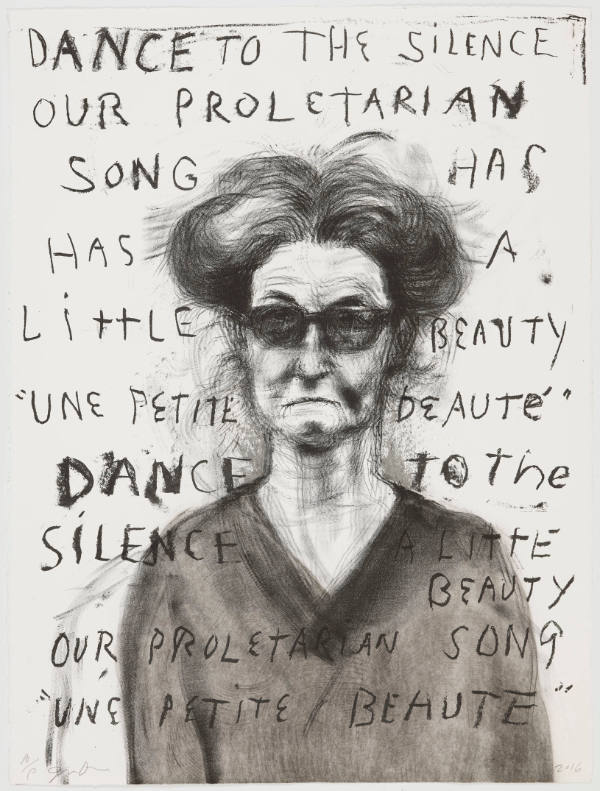 DANCE TO THE SILENCE
OUR PROLETARIAN
SONG HAS
HAS A
LittLE BEAUTY
"UNE PETITE BEAUTÉ"
DANCE TO The
SiLENCE A LittE
BEAUTY
OUR PROLETARIAN SONG
"UNE PETiTE BEAUTE"
A/P
2016